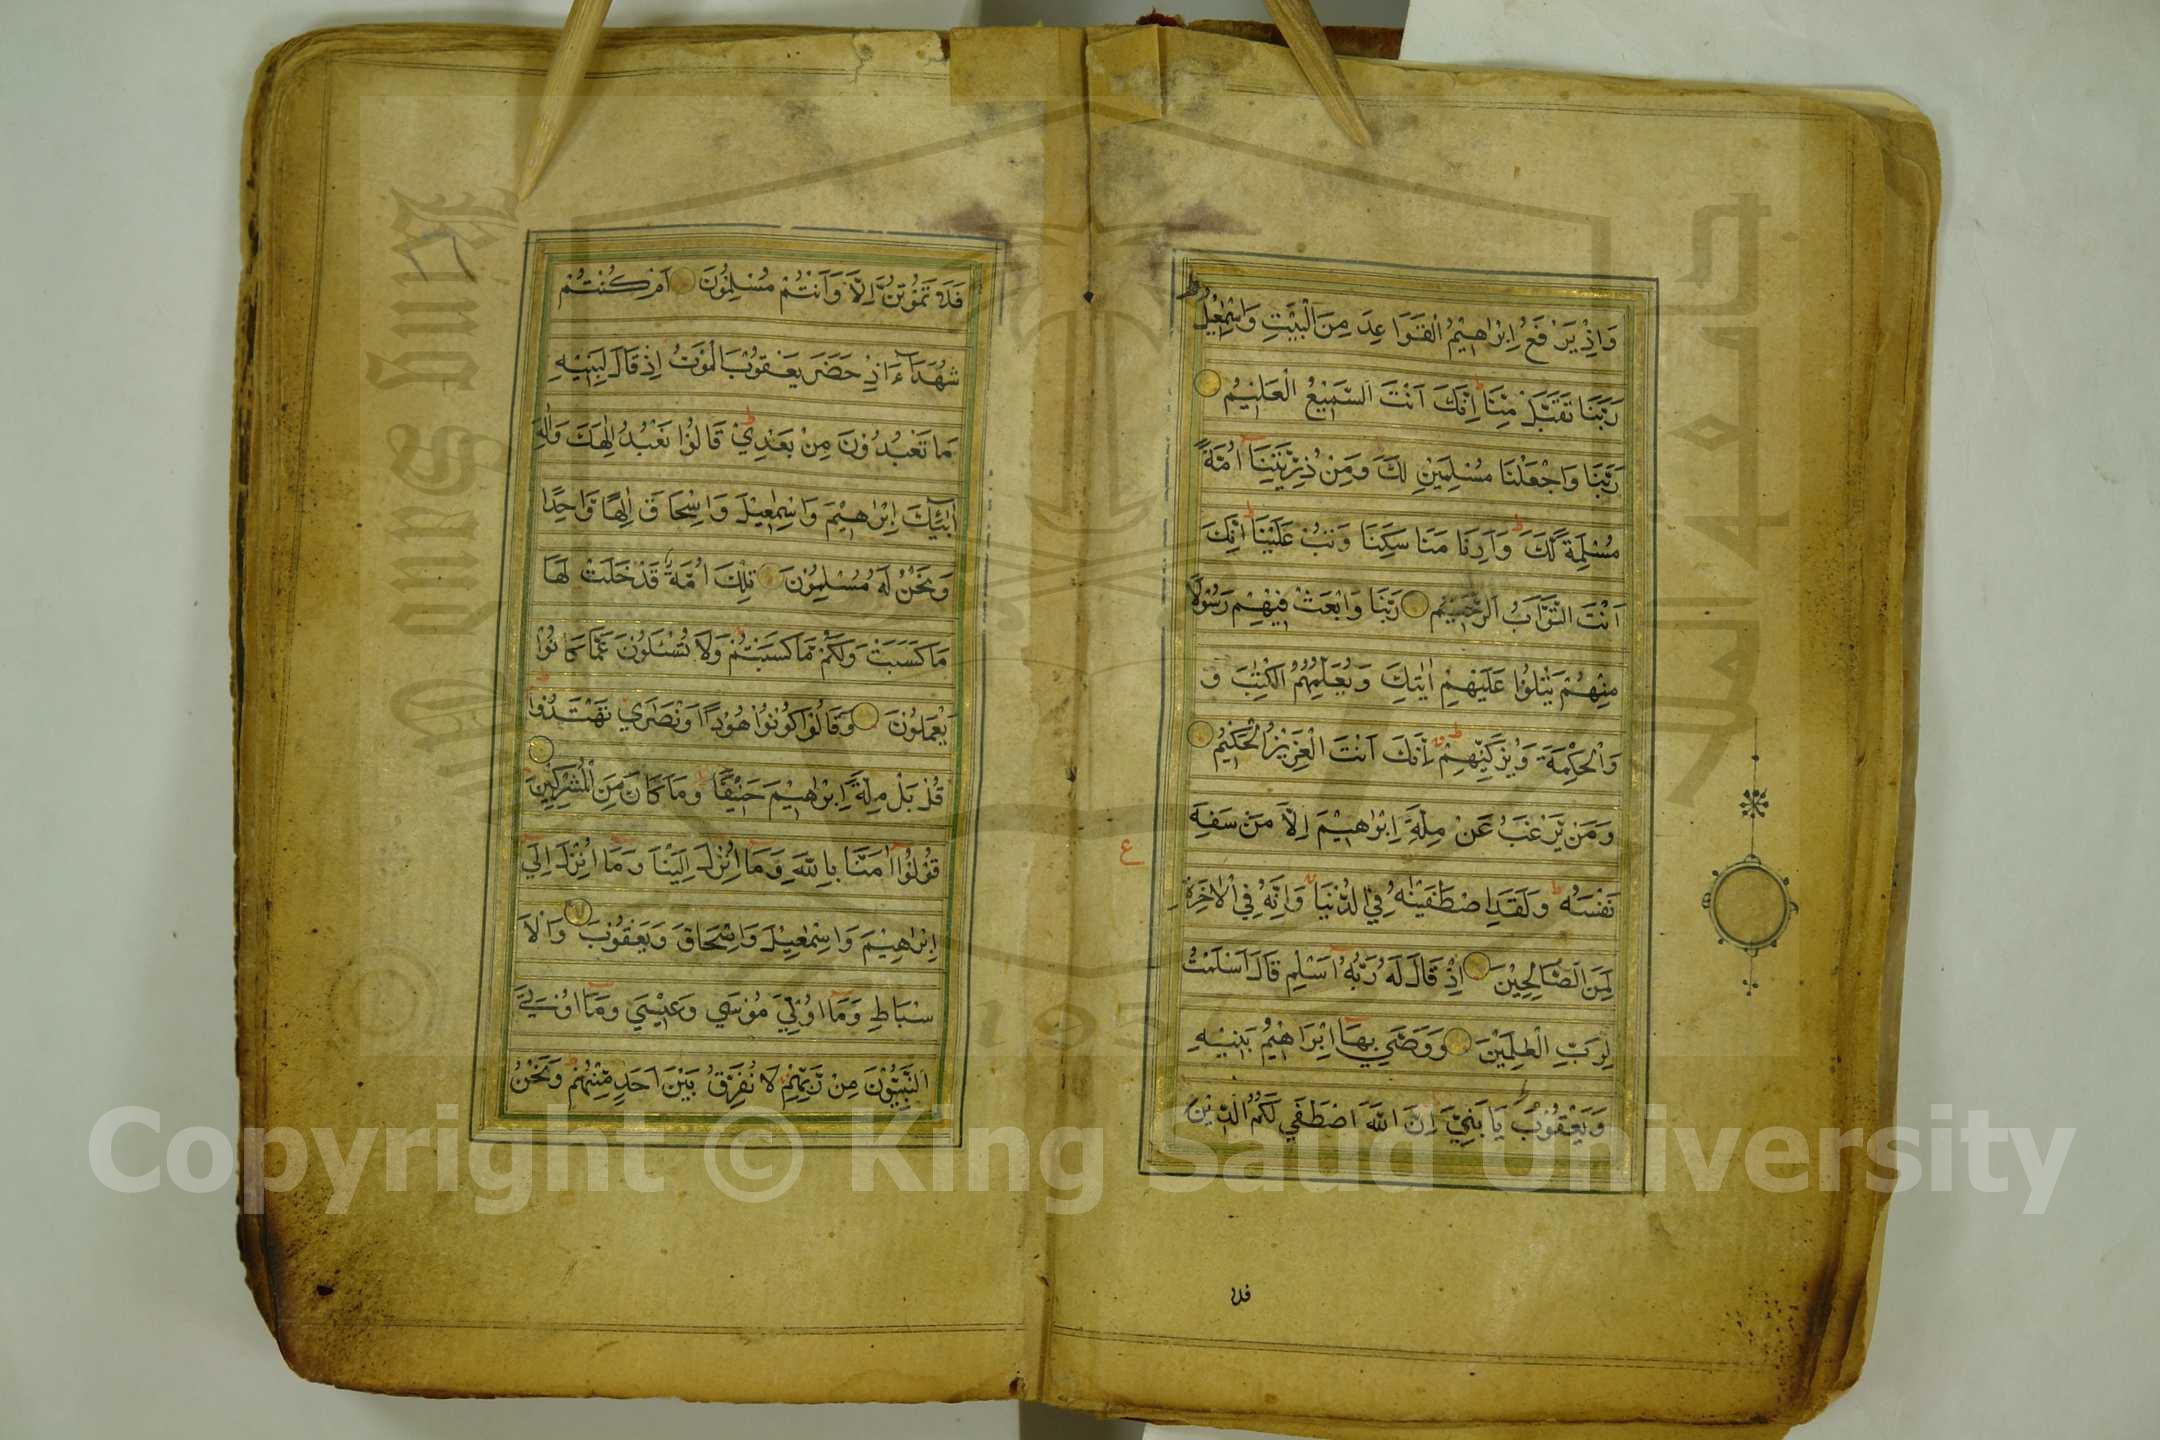 وَاِذْ يَرْفَعُ اِبْرٰهٖيمُ الْقَوَاعِدَ مِنَ الْبَيْتِ وَاِسْمٰعٖيلُ
رَبَّنَا تَقَبَّلْ مِنَّا اِنَّكَ اَنْتَ السَّمٖيعُ الْعَلٖيمُ
رَبَّنَا وَاجْعَلْنَا مُسْلِمَيْنِ لَكَ وَمِنْ ذُرِّيَّتِنَا اُمَّةً
مُسْلِمَةً لَكَ وَاَرِنَا مَنَاسِكَنَا وَتُبْ عَلَيْنَا اِنَّكَ
اَنْتَ التَّوَّابُ الرَّحٖيمُ رَبَّنَا وَابْعَثْ فٖيهِمْ رَسُولًا
مِنْهُمْ يَتْلُوْا عَلَيْهِمْ اٰيٰتِكَ وَيُعَلِّمُهُمُ الْكِتٰبَ وَ
وَالْحِكْمَةَ وَيُزَكّٖيهِمْ اِنَّكَ اَنْتَ الْعَزٖيزُ الْحَكٖيمُ
وَمَنْ يَرْغَبُ عَنْ مِلَّةِ اِبْرٰهٖيمَ اِلَّا مَنْ سَفِهَ
نَفْسَهُ وَلَقَدِ اصْطَفَيْنٰهُ فِي الدُّنْيَا وَاِنَّهُ فِي الْاٰخِرَةِ
لَمِنَ الصَّالِحٖينَ اِذْ قَالَ لَهُ رَبُّهُ اَسْلِمْ قَالَ اَسْلَمْتُ
لِرَبِّ الْعٰلَمٖينَ وَوَصّٰي بِهَا اِبْرَاهٖيمُ بَنٖيهِ
وَيَعْقُوبُ يَا بَنِيَّ اِنَّ اللّٰهَ اصْطَفٰي لَكُمُ الدّٖينَ
فلا
ع
فَلَا تَمُوتُنَّ اِلَّا وَاَنْتُمْ مُسْلِمُونَ اَمْ كُنْتُمْ
شُهَدَاءَ اِذْ حَضَرَ يَعْقُوبَ الْمَوْتُ اِذْ قَالَ لِبَنٖيهِ
مَا تَعْبُدُونَ مِنْ بَعْدٖي قَالُوا نَعْبُدُ اِلٰهَكَ وَاِلٰهَ
اٰبَائِكَ اِبْرٰهٖيمَ وَاِسْمٰعٖيلَ وَاِسْحَاقَ اِلٰهًا وَاحِدًا
وَنَحْنُ لَهُ مُسْلِمُونَ تِلْكَ اُمَّةٌ قَدْ خَلَتْ لَهَا
مَا كَسَبَتْ وَلَكُمْ مَا كَسَبْتُمْ وَلَا تُسْئَلُونَ عَمَّا كَانُوا
يَعْمَلُونَ وَقَالُوا كُونُوا هُودًا اَوْ نَصَارٰي تَهْتَدُوا
قُلْ بَلْ مِلَّةَ اِبْرٰهٖيمَ حَنٖيفًا وَمَا كَانَ مِنَ الْمُشْرِكٖينَ
قُولُوا اٰمَنَّا بِاللّٰهِ وَمَا اُنْزِلَ اِلَيْنَا وَمَا اُنْزِلَ اِلٰي
اِبْرٰهٖيمَ وَاِسْمٰعٖيلَ وَاِسْحَاقَ وَيَعْقُوبَ وَالْاَ
سْبَاطِ وَمَا اُوتِيَ مُوسٰي وَعٖيسٰي وَمَا اُوتِيَ
النَّبِيُّونَ مِنْ رَبِّهِمْ لَا نُفَرِّقُ بَيْنَ اَحَدٍ مِنْهُمْ وَنَحْنُ
King Saud University
جامعة الملك سعود
1957
Copyright © King Saud University